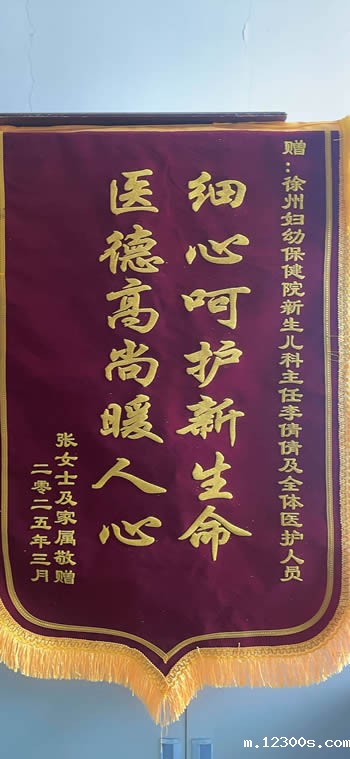 赠：徐州妇幼保健院新生儿科主任李倩倩及全体医护人员
细心呵护新生命
医德高尚暖人心
张女士及家属敬赠
二零二五年三月
m.12300s.com